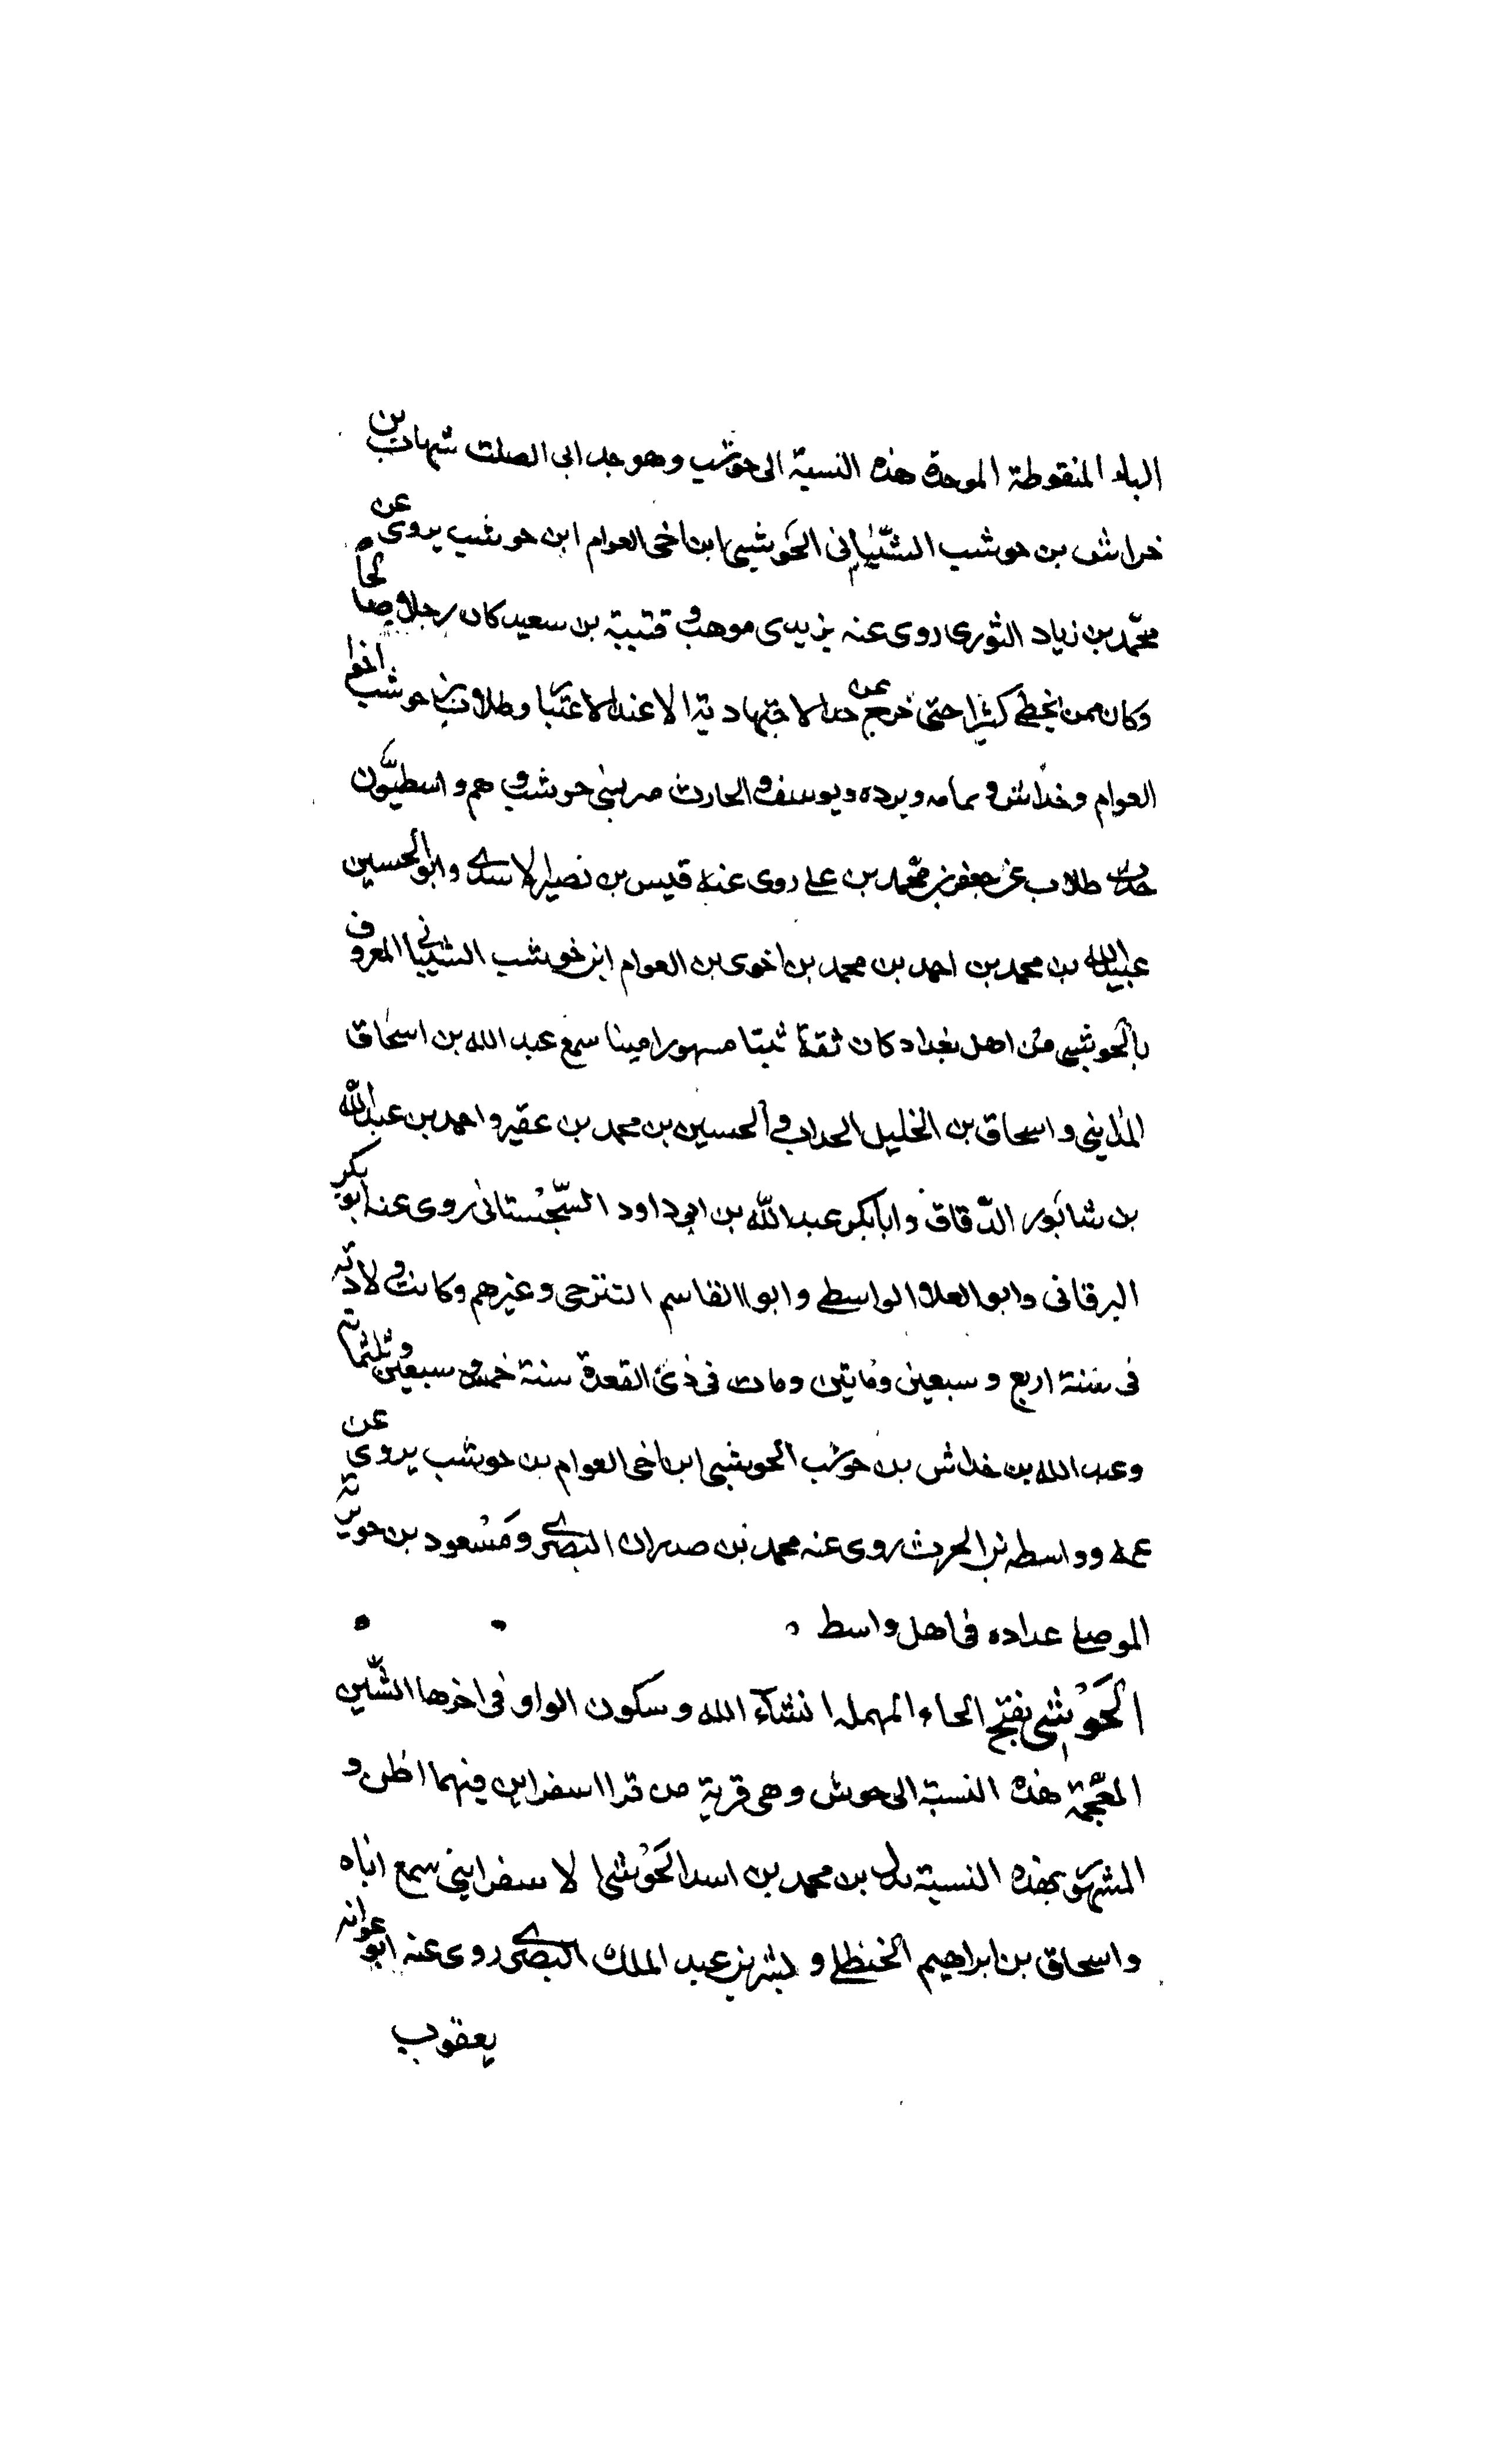 الباء المنقوطة الموحدة هذه النسبة الى حوشب وهو جد ابى الصلت شهاب بن
خراش بن حوشب الشيبانى الحوشبى ابن اخى العوام ابن حوشب يروى عن
محمد بن زياد الثورى روى عنه يزيد موهب و قتيبة بن سعيد كان رجلا صالحا
وكان ممن يخطى كثيرا حتى خرج عن حد الاحتجاج به الا عند الاعتبار وطلاب بن حوشب اخوا
العوام وخداش و ويرده ويوسف والحارث بنى حوشب و هم واسطيون
حدث طلاب عن جعفر بن محمد بن على روى عنه قيس بن نصير الاسدى وابو الحسين
عبيد الله بن محمد بن احمد بن محمد بن اخوى بن العوام ابن حوشب الشيبانى المعروف
بالحوشبى من اهل بغداد كان ثقة ثبتا مسهورا امينا سمع عبد الله بن اسحاق
المداينى و اسحاق بن الخليل الحداب و الحسين بن محمد بن عفير و احمد بن عبد الله
بن شابور الدقاق و ابا بكر عبد الله بن ابى داود السجستانى روى عنه ابو بكر
البرقانى و ابو العلا الواسطى و ابو القاسم التنوخى وغيرهم وكانت ولادته
فى سنة اربع و سبعين وماتين ومات فى ذى القعدة سنة خمس و سبعين وثلثمائة
و عبد الله بن خداش بن حوشب الحوشبى ابن اخى العوام بن حوشب يروى عن
عمه وواسطه بن الحرث روى عنه محمد بن صدران البصرى ومسعود بن حويرثة
الموصلى عداده فى اهل واسط
الحوشى بفتح الحاء المهمله انشآء الله وسكون الواو فى اخرها الشين
المعجمة هذه النسبة الى حوش وهى قرية من قرا اسفراين فيهما اظن و
المشهور بهذه النسبة بدل بن محمد بن اسد الحوشى الاسفراينى سمع اباه
و اسحاق بن ابراهيم الحنظلى و بشر بن عبد الملك البصرى روى عنه ابو عوانه
يعقوب